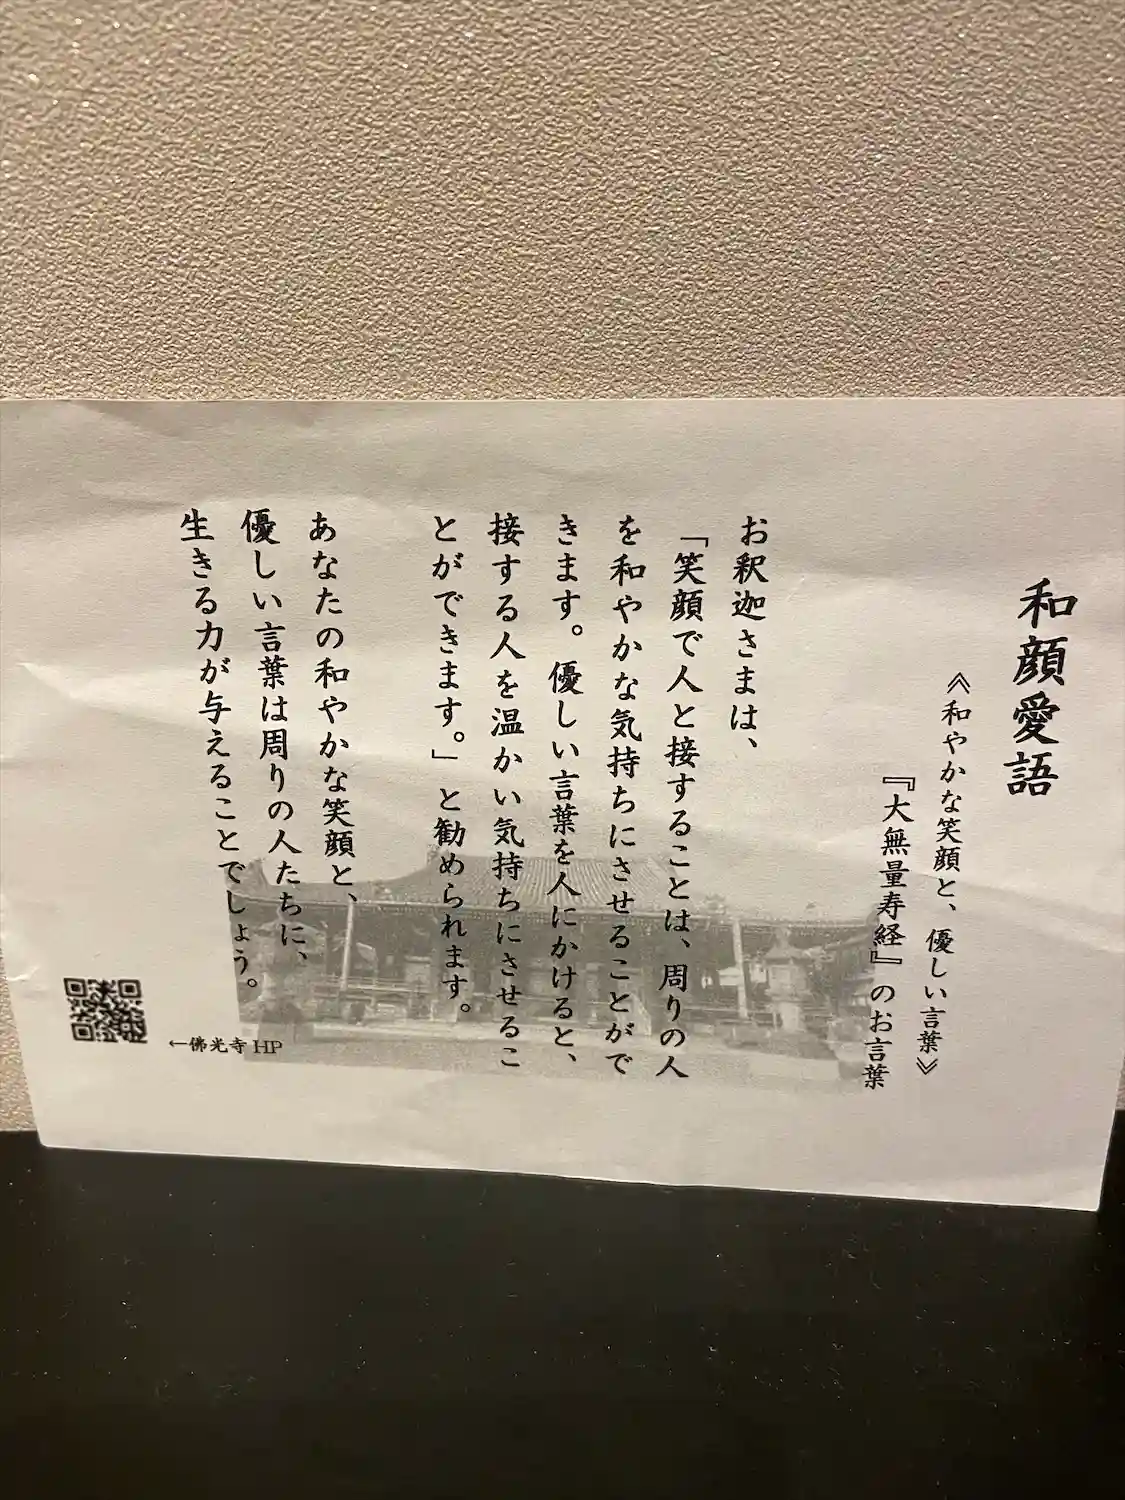 和顔愛語
《和やかな笑顔と、優しい言葉》
『大無量寿経』のお言葉
お釈迦さまは、
「笑顔で人と接することは、周りの人
を和やかな気持ちにさせることがで
きます。優しい言葉を人にかけると、
接する人を温かい気持ちにさせるこ
とができます。」と勧められます。
あなたの和やかな笑顔と、
優しい言葉は周りの人たちに、
生きる力が与えることでしょう。
←佛光寺HP